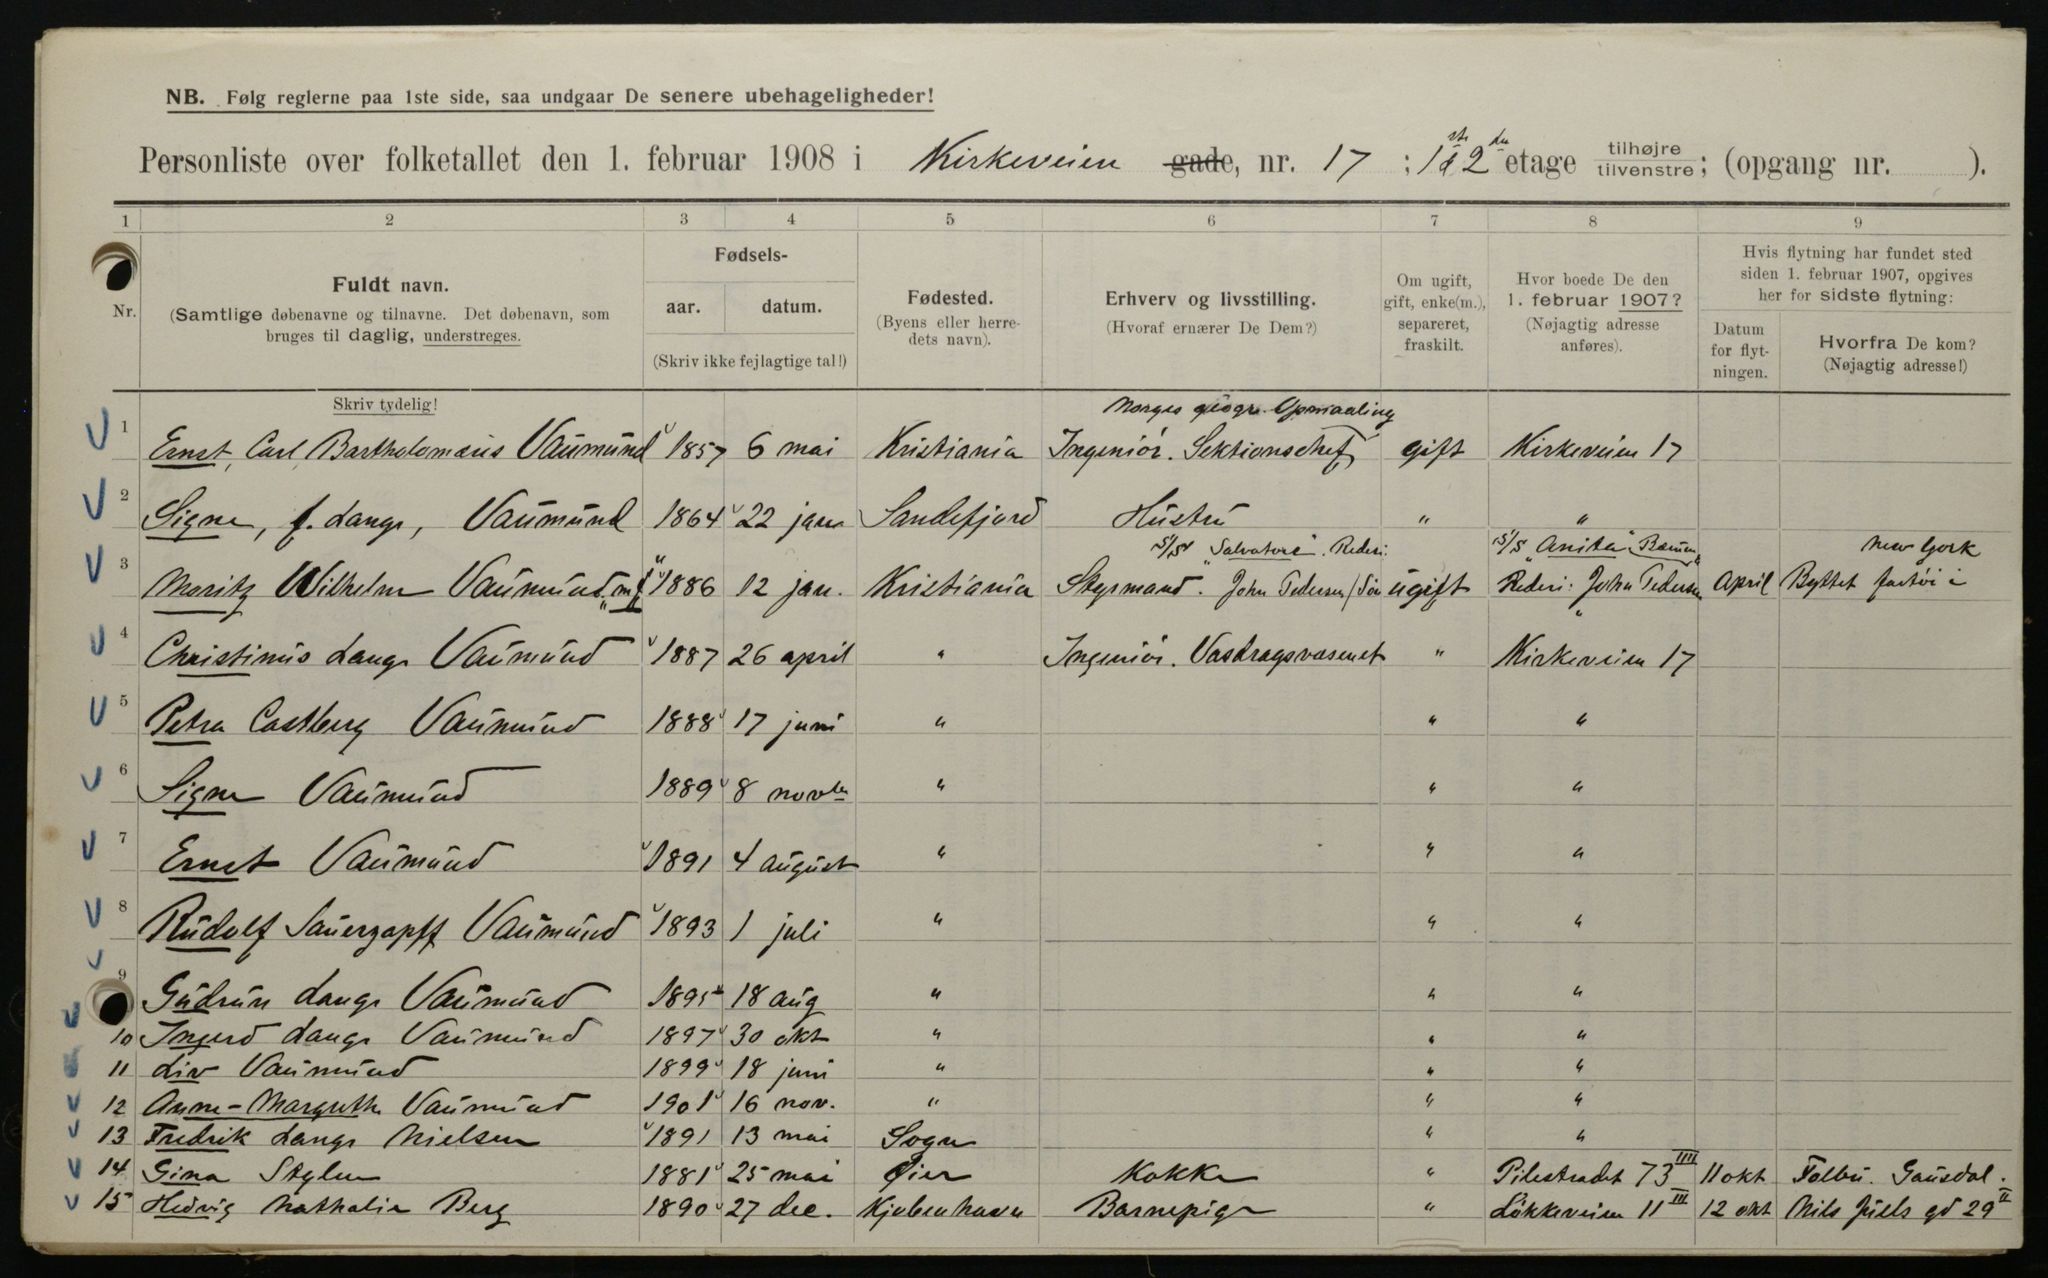 NB. Følg reglerne paa 1ste side, saa undgaar De senere ubehageligheder!
Personliste over folketallet den 1. februar 1908 i Kirkeveien gade, nr. 17 ; 1ste & 2den etage tilhøjre tilvenstre; (opgang nr. ).
1 2 3 4 5 6 7 8 9
Nr.
Fuldt navn.
(Samtlige døbenavne og tilnavne. Det døbenavn, som
bruges til daglig, understreges.
Fødsels-
aar. datum.
(Skriv ikke fejlagtige tal!)
Fødested.
(Byens eller herre-
dets navn).
Erhverv og livsstilling.
(Hvoraf ernærer De Dem?)
Om ugift,
gift, enke(m.),
separeret,
fraskilt.
Hvor boede De den
1. februar 1907?
(Nøjagtig adresse
anføres).
Hvis flytning har fundet sted
siden 1. februar 1907, opgives
her for sidste flytning:
Datum
for flyt-
ningen.
Hvorfra De kom?
(Nøjagtig adresse!)
Skriv tydelig!
Norges geogr. Opmaaling
1 Ernst, Carl Bartholomæus Vaumund 1857 6 mai Kristiania Ingeniör. Sektionschef gift Kirkeveien 17
2 Signe, f. Lange, Vaumund 1864 22 jan Sandefjord Hustru " "
S/S "Salvatore". Rederi: S/S "Anita", New York
3 Moritz Wilhelm Vaumund 1886 12 jan. Kristiania Styrmand. John Pedersen / Sön ugift Rederi: John Pedersen April Byttet fartöi i
4 Christinus Lange Vaumund 1887 26 april " Ingeniör. Vasdragsvæsenet " Kirkeveien 17
5 Petra Castberg Vaumund 1888 17 juni " " "
6 Signe Vaumund 1889 8 novbr " " "
7 Ernst Vaumund 1891 4 august " " "
8 Rudolf Sauerzapff Vaumund 1893 1 juli " " "
9 Gudrun Lange Vaumund 1895 18 aug " " "
10 Ingerd Lange Vaumund 1897 30 okt " " "
11 Liv Vaumund 1899 18 juni " " "
12 Anne-Margrethe Vaumund 1901 16 nov. " " "
13 Fredrik Lange Nielsen 1891 13 mai Sogn " "
14 Gina 1881 25 mai Öier Kokke " Pilestrædet 73 IIII 11 okt Folbu. Gausdal.
15 Hedvig Nathalie Berg 1890 27 dec. Kjøbenhavn Barnepige " Lökkeveien 11 III 12 okt Nils Juels gd 29 II